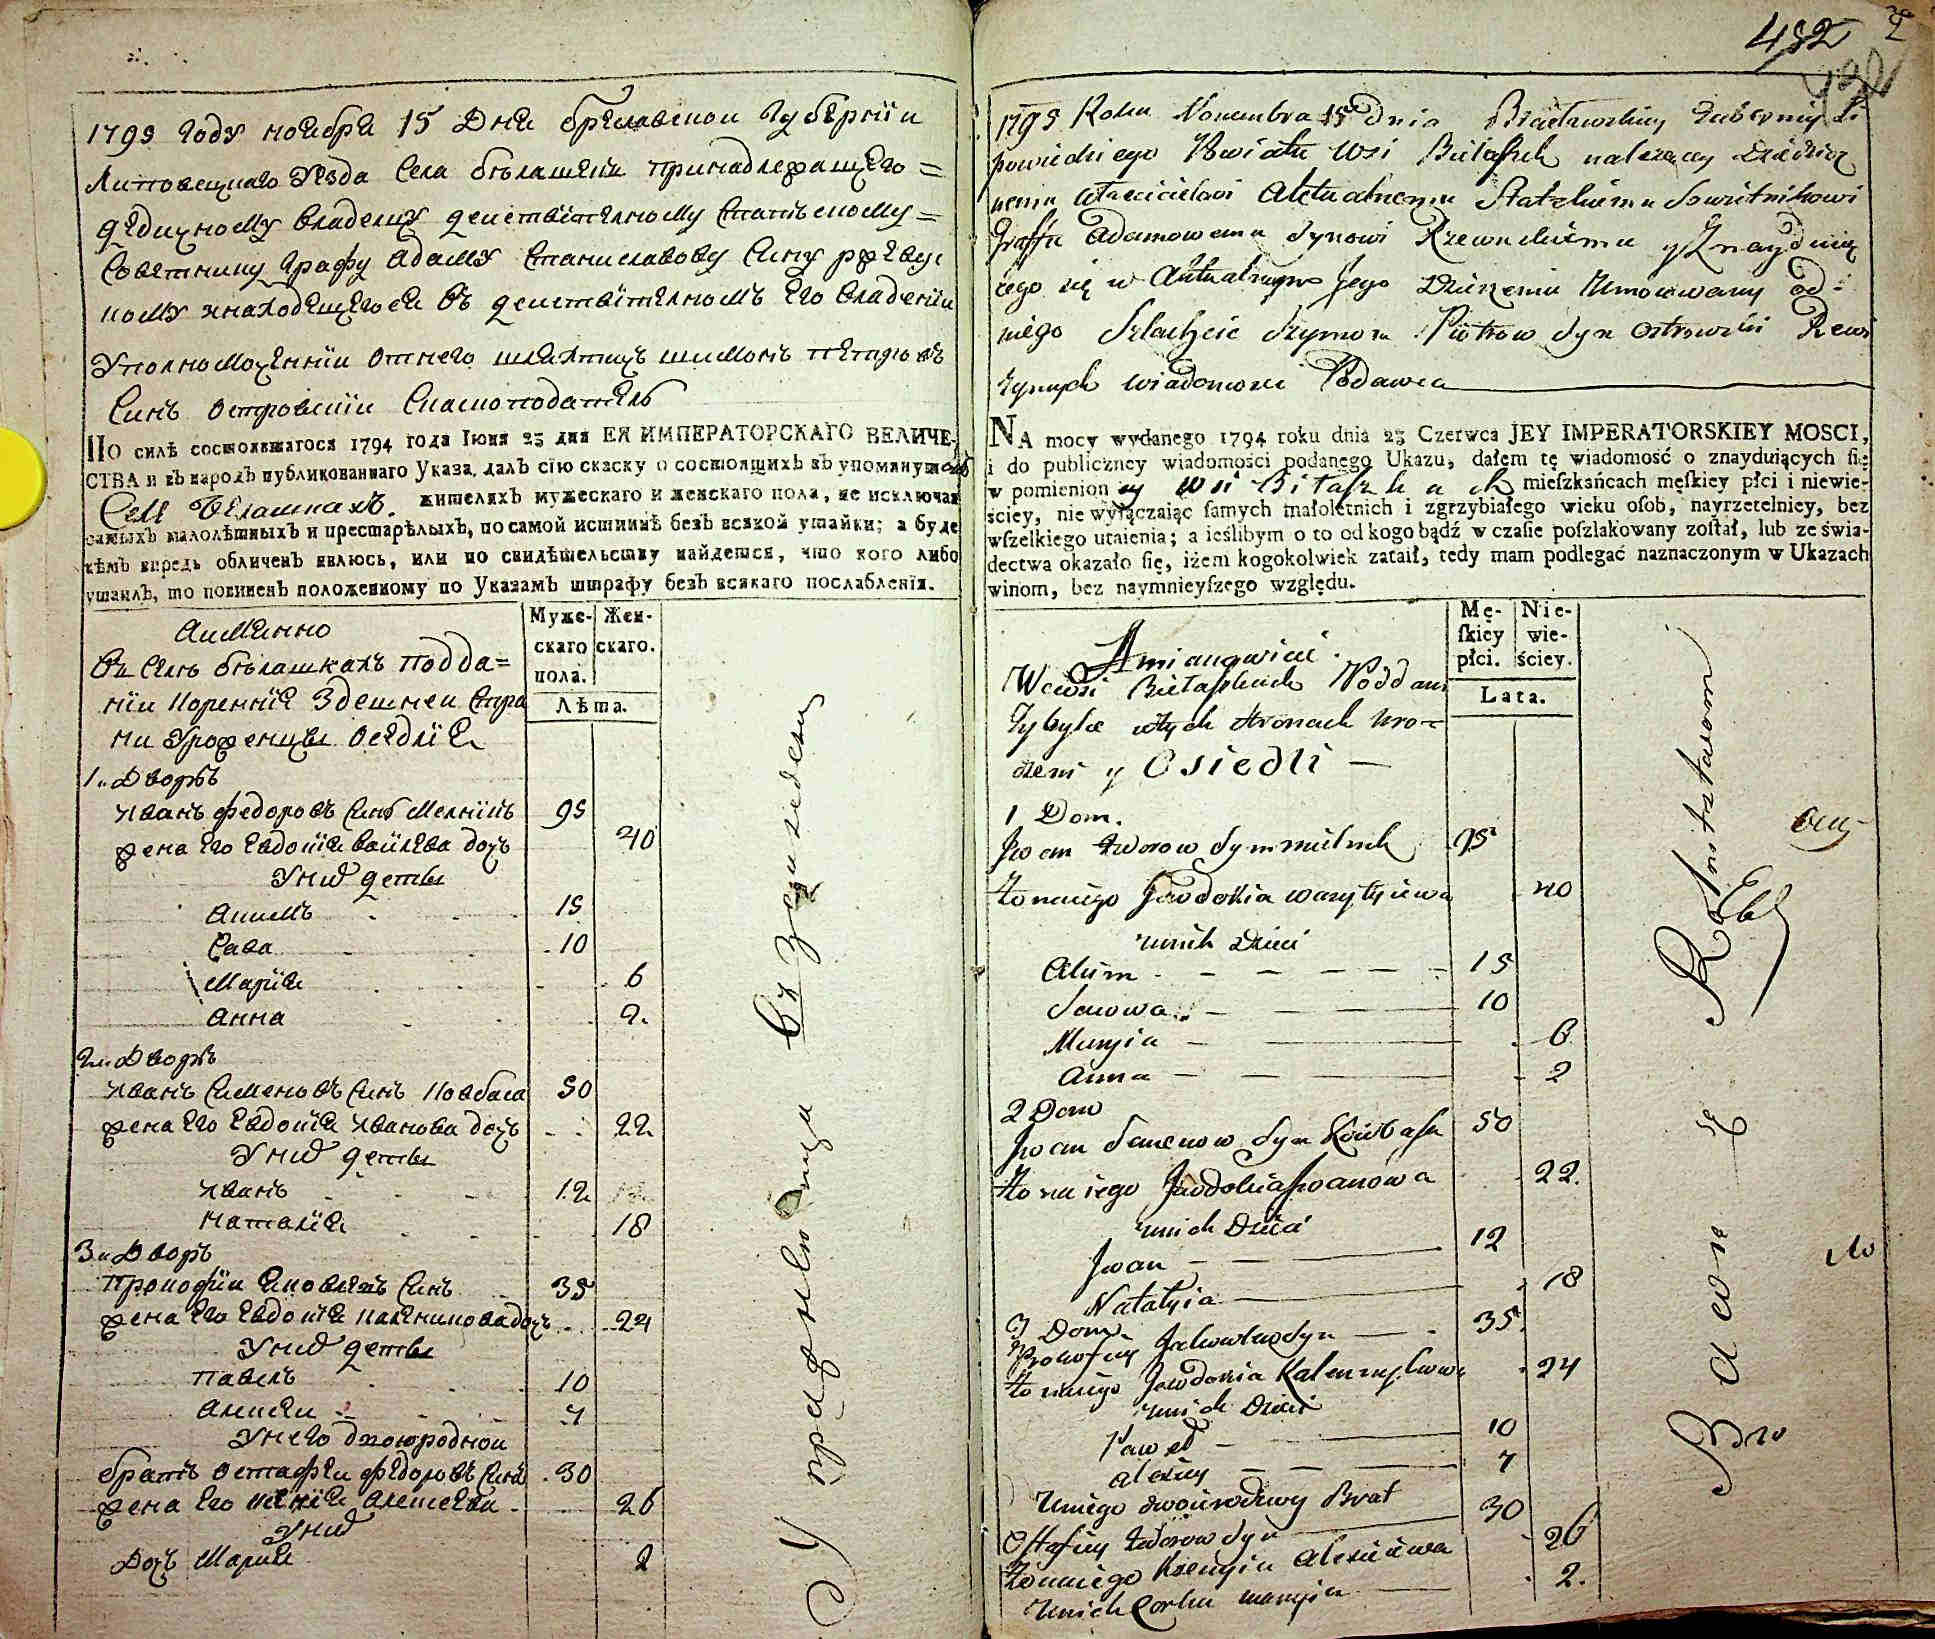 1795 году ноября 15 дня Браславской губернии
Липовецкаго уезда села белашекъ принадлежащего =
дедичному владелцу действителному статскому =
советнику графу адаму станиславову сину ржевус
кому находящегося въ действителномъ его владении
уполномоченнии отнего шляхтичъ шимонъ петровъ
синъ островскии скаскоподатель
ПО силѣ состоявшагося 1794 года Іюня 23 дня ЕЯ ИМПЕРАТОРСКАГО ВЕЛИЧЕ-
СТВА и въ народъ публикованнаго Указа, далъ сію сказку о состоящихъ въ упомянутомъ
Селе Белашкахъ. жителяхъ мужескаго и женскаго пола, не исключая
самыхъ малолѣтныхъ и престарѣлыхъ, по самой истиннѣ безъ всякой утайки; а буде
кѣмъ впредь обличенъ явлюсь, или по свидѣтельству найдется, что кого либо
утаилъ, то повиненъ положенному по Указамъ штрафу безъ всякаго послабленія.
Муже-скаго пола. Жен-скаго.
Лѣта.
Аимянно
Въ селе белашкахъ подда=
нии коренние здешней стра
ни уроженцы оседлие
1. Дворъ
Иванъ федоровъ синъ Мелникъ 95
жена его евдокия василева дочъ 40
у них дети
Акимъ 15
Сава 10
Мария 6
Анна 2.
2. Дворъ
Иванъ семеновъ синъ ковбаса 50
жена его евдокия иванова дочъ 22
у них дети
Иванъ 12
Наталия 18
3. Дворъ
Прокофии яковлевъ синъ 35
жена его евдокия калениковадочъ 24
у них дети
Павелъ 10
Алексеи 7
у него двоюроднои
братъ остафеи федоровъ синъ 30
жена его ксения алексеева 26
у них
Дочъ Мария 2
482
1795 Roku Nowembra 15 dnia Bracławskiey Guberniy Li
powieckiego Powiatu Wsi Białaszek należącey Dziedicz
nemu włascicielowi Aktualnemu Statskiemu Sowietnikowi
Graffu Adamowemu Synowi Rzewuskiemu y Znayduią
cego się w Aktualnym Jego Dzierzeniu Umocowany od
niego Szlachcic Szymon Piotrow Syn Ostrowski Rewi
zynych wiadomosci Podawca
NA mocy wydanego 1794 roku dnia 23 Czerwca JEY IMPERATORSKIEY MOSCI,
i do publiczney wiadomości podanego Ukazu, dałem tę wiadomość o znayduiących ſię
w pomienioney wsi Białaszkach mieſzkańcach męſkiey płci i niewie-
ściey, nie wyłączaiąc ſamych małoletnich i zgrzybiałego wieku oſob, nayrzetelniey, bez
wſzelkiego utaienia; a ieślibym o to od kogo bądź w czaſie poſzlakowany zoſtał, lub ze świa-
dectwa okazało ſię, iżem kogokolwiek zataił, tedy mam podlegać naznaczonym w Ukazach
winom, bez naymnieyſzego względu.
Mę-ſkiey płci. Nie-wie-ściey.
Lata.
Amianowicie.
Wewsi Białaszkach Poddani
Zybyłe wtych stronach uro-
dzeni y Osiedli
1 Dom.
Jwan Fedorow Syn mielnik 95
Żona iego Jewdokia wasylijewa 40
unich Dzieci
Akim 15
Sawa 10
Maryia 6
Anna 2
2 Dom
Jwan Semenow Syn Kowbasa 50
Żona iego Jewdokia Jwanowa 22.
unich Dzieci
Jwan 12
Natalyia 18
3 Dom.
Prokofiey Jakowlew Syn 35.
Żona iego Jewdokia Kalenykowa 24
unich Dzieci
Paweł 10
Alexiey 7
Uniego dwoiurodzony Brat
Ostafiey Fedorow Syn 30
Żona iego Ksenyia Alexiiewa 26
Unich Corka maryia 2.